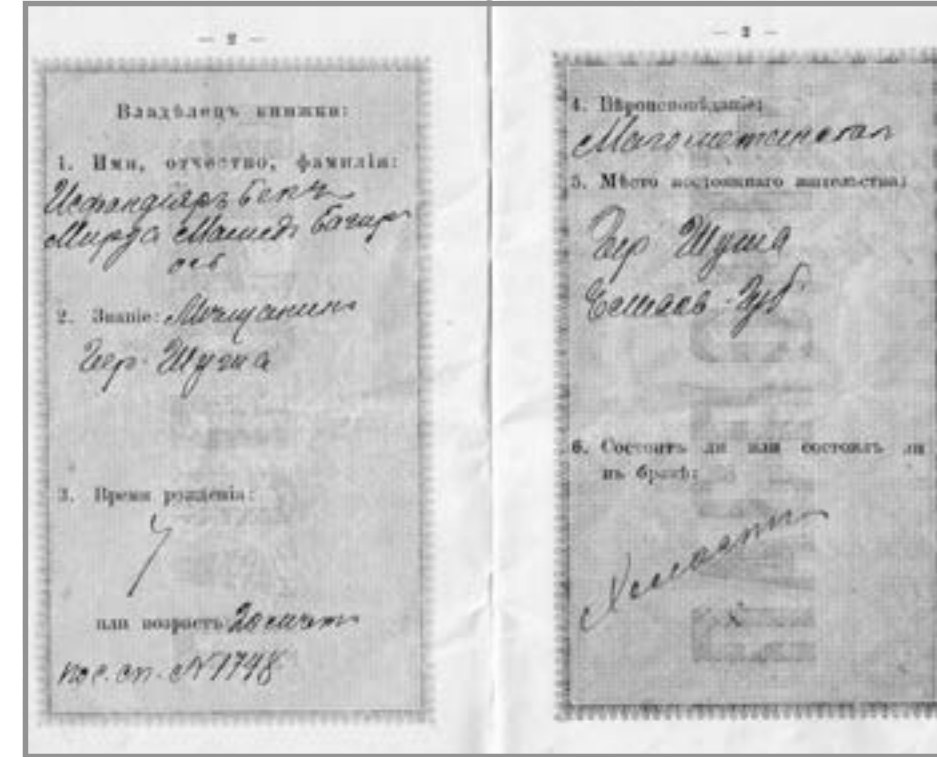 — 2 —
Владѣлецъ книжки:
1. Имя, отчество, фамилія:
Исфандіяръ Бекъ
Мирза Мамедъ Багир
овъ
2. Званіе: Мѣщанинъ
Гор. Шуша
3. Время рожденія:
или возрастъ: 20
пос. сп. № 1748
— 3 —
4. Вѣроисповѣданіе:
Магометанская
5. Мѣсто постояннаго жительства:
Гор Шуша
Елисав. Губ.
6. Состоитъ ли или состоялъ ли
въ бракѣ:
Холостъ